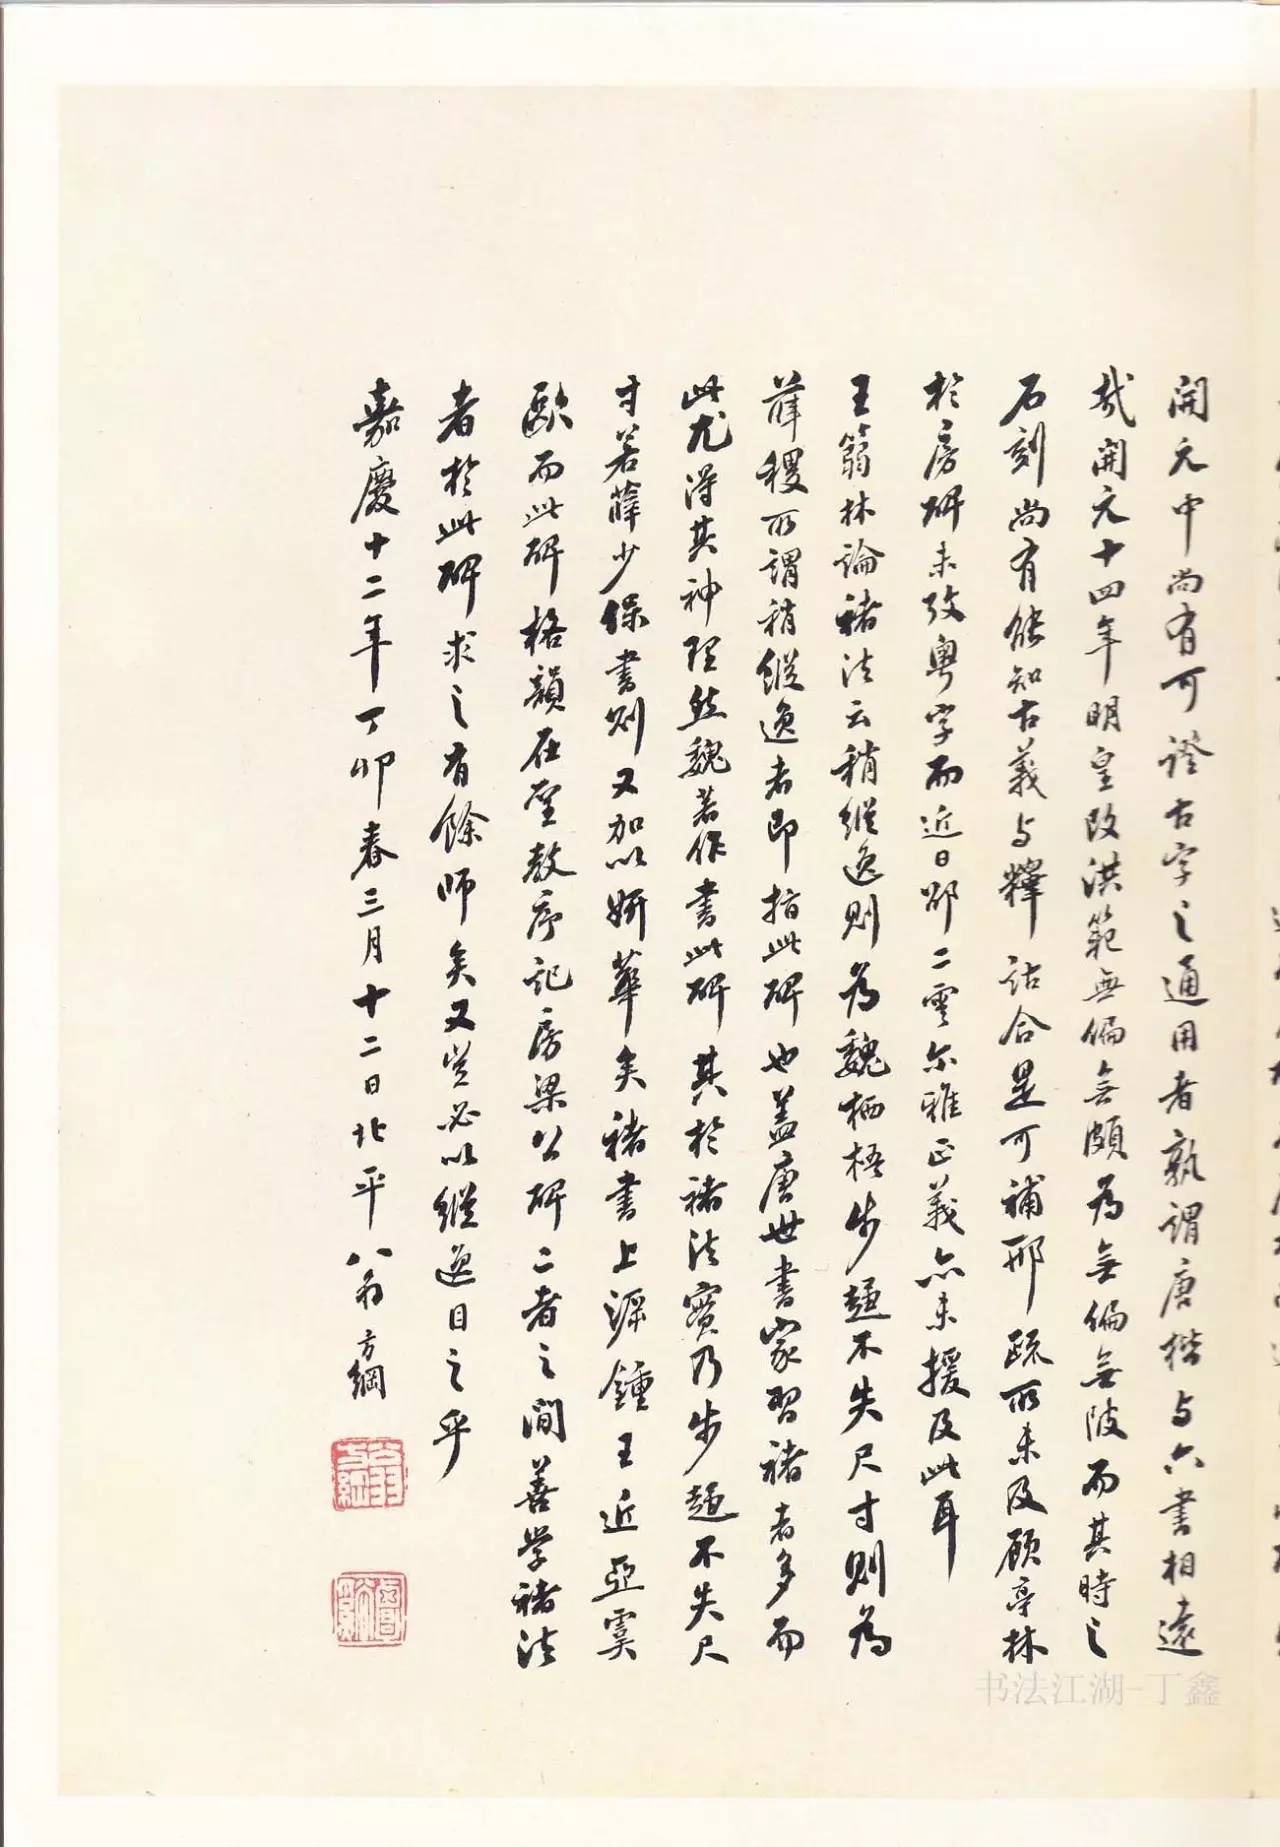 開元中尚有可證古字之通用者孰謂唐楷与六書相遠
哉開元十四年明皇改洪範無偏無頗為無偏無陂而其時之
石刻尚有能知古義与釋詁合是可補邢疏所未及顧亭林
於房碑未攷粤字而近日邵二雲尔雅正義亦未援及此耳
王篛林論褚法云稍縱逸則為魏栖梧步趨不失尺寸則為
薛稷所謂稍縱逸者即指此碑也蓋唐世書家習褚者多而
此尤得其神理然魏著作書此碑其於褚法實乃步趨不失尺
寸若薛少保書則又加以妍華矣褚書上源鍾王近亞虞
歐而此碑格韻在聖教序記房梁公碑二者之間善学褚法
者於此碑求之有餘師矣又豈必以縱逸目之乎
嘉慶十二年丁卯春三月十二日北平翁方綱
翁方綱
覃谿
书法江湖-丁鑫